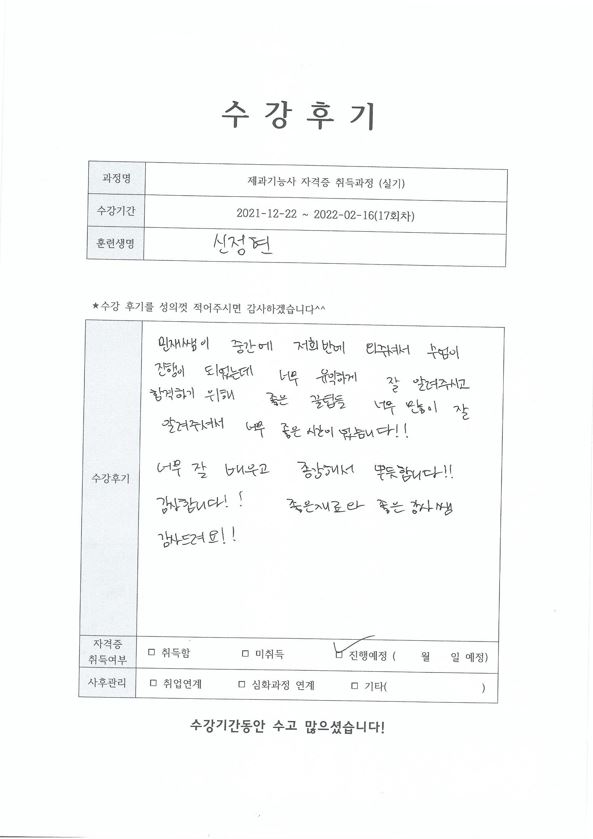 수강후기
과정명 제과기능사 자격증 취득과정 (실기)
수강기간 2021-12-22 ~ 2022-02-16(17회차)
훈련생명 신정현
★수강 후기를 성의껏 적어주시면 감사하겠습니다^^
수강후기
민재쌤이 중간에 저희반에 와주셔서 수업이
진행이 되었는데 너무 유익하게 잘 알려주시고
합격하기 위해 좋은 꿀팁들 너무 많이 잘
알려주셔서 너무 좋은 시간이 었습니다!!
너무 잘 배우고 종강해서 뿌듯합니다!!
감사합니다!! 좋은재료와 좋은 강사쌤
감사드려요!!
자격증 취득여부 □ 취득함 □ 미취득 ☑ 진행예정 ( 월 일 예정)
사후관리 □ 취업연계 □ 심화과정 연계 □ 기타( )
수강기간동안 수고 많으셨습니다!